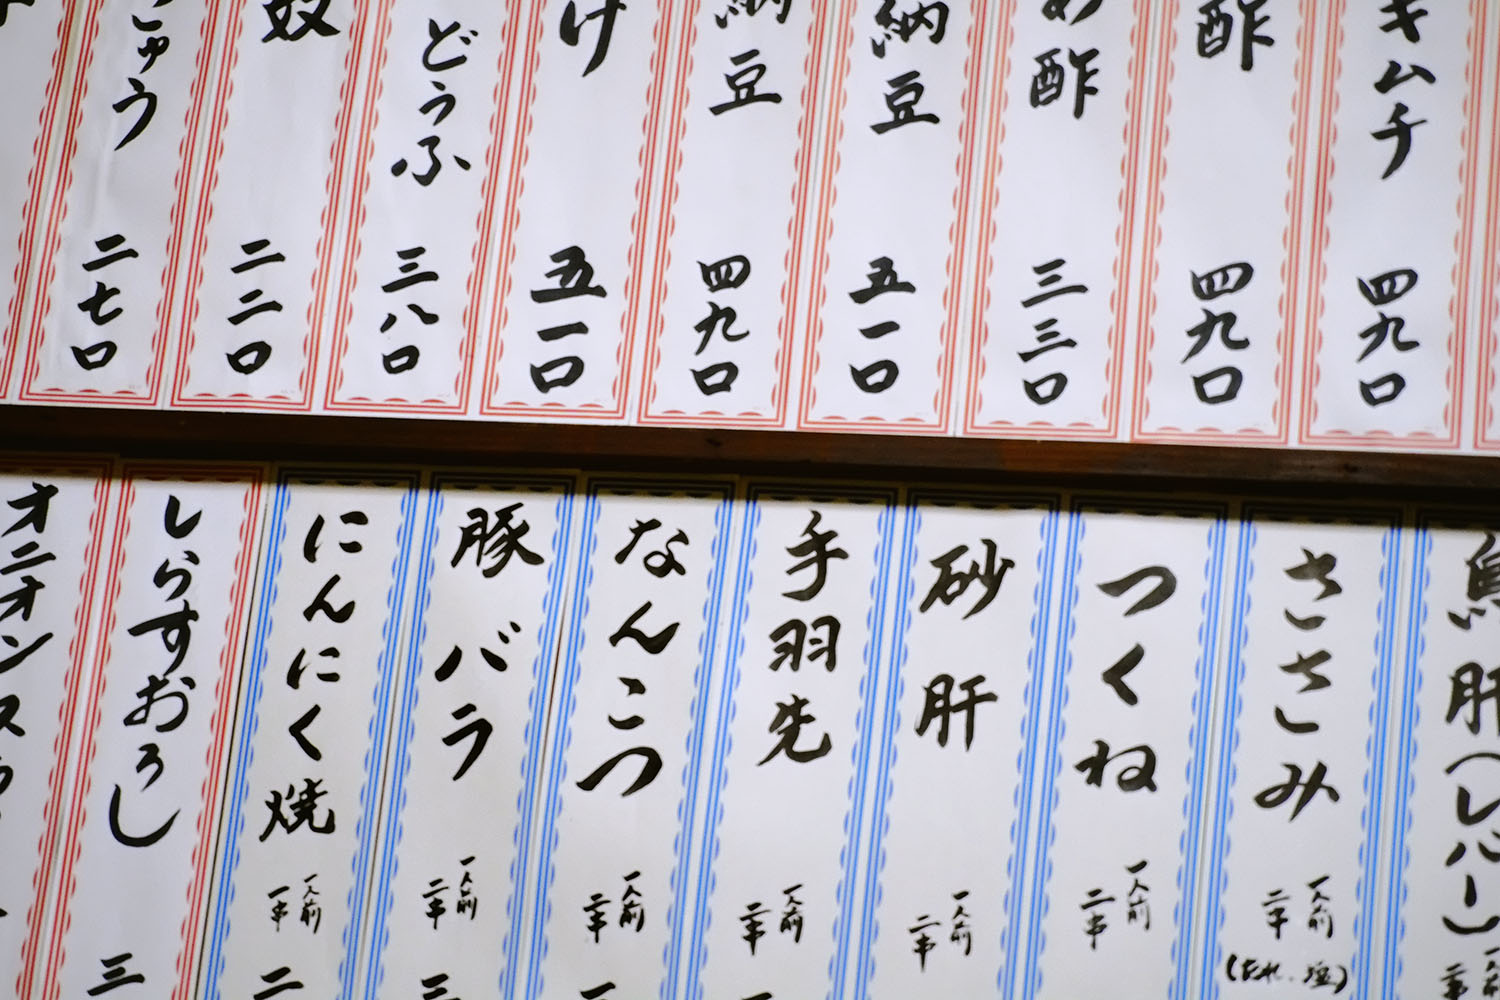 キムチ 四九〇
酢 四九〇
酢 三三〇
納豆 五一〇
納豆 四九〇
け 五一〇
どうふ 三八〇
奴 二二〇
きゅう 二七〇
鳥肝(レバー)
ささみ 一人前 二串 (たれ・塩)
つくね 一人前 二串
砂肝 一人前 二串
手羽先 一人前 二串
なんこつ 一人前 二串
豚バラ 一人前 二串
にんにく焼 一人前 一串
しらすおろし 三
オニオンス